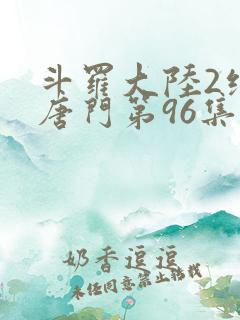 斗羅大陸2
唐門第96集
奶香逗逗
未经同意禁止转载